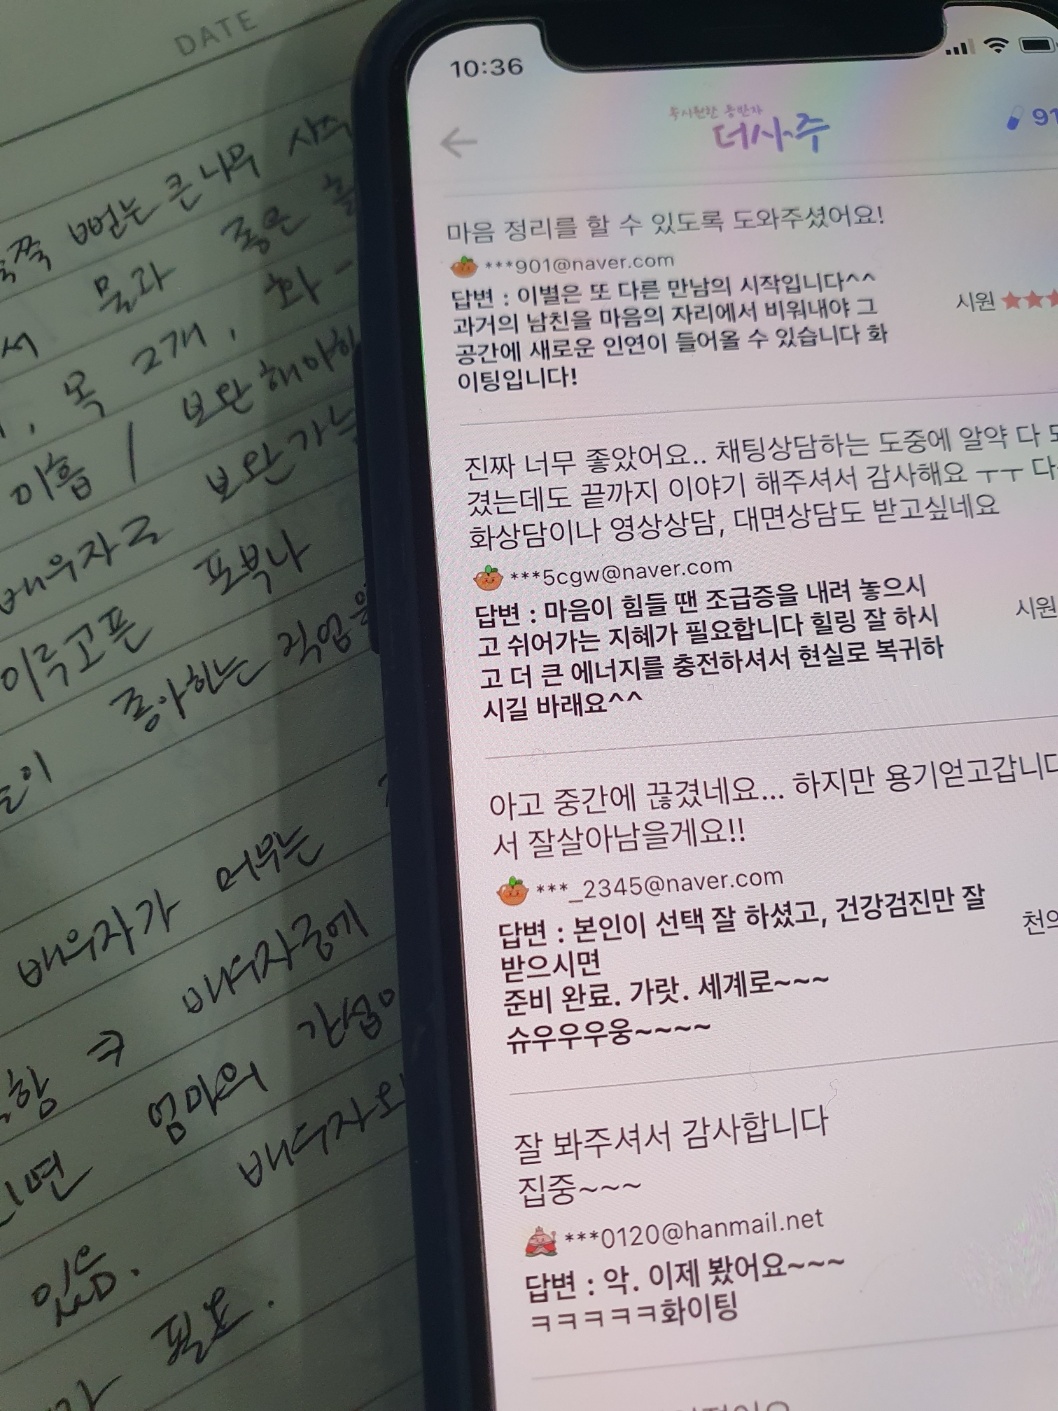 DATE
뻗는 큰 나무
물과 좋은
서 화 -
, 목 2개,
미흡 / 보완해야
배우자로 보완가능
이루고픈 포부나
좋아하는 직업을
들이
배우자가 머무는
배우자궁에
엄마의 간섭이
배우자와
있음.
필요.
10:36
속시원한 동반자
더사주
91
마음 정리를 할 수 있도록 도와주셨어요!
***901@naver.com
답변 : 이별은 또 다른 만남의 시작입니다^^
과거의 남친을 마음의 자리에서 비워내야 그
공간에 새로운 인연이 들어올 수 있습니다 화
이팅입니다!
시원 ★★★
진짜 너무 좋았어요.. 채팅상담하는 도중에 알약 다
겼는데도 끝까지 이야기 해주셔서 감사해요 ㅜㅜ 다
화상담이나 영상상담, 대면상담도 받고싶네요
***5cgw@naver.com
답변 : 마음이 힘들 땐 조급증을 내려 놓으시
고 쉬어가는 지혜가 필요합니다 힐링 잘 하시
고 더 큰 에너지를 충전하셔서 현실로 복귀하
시길 바래요^^
시원
아고 중간에 끊겼네요... 하지만 용기얻고갑니다
서 잘살아남을게요!!
***_2345@naver.com
답변 : 본인이 선택 잘 하셨고, 건강검진만 잘
받으시면
준비 완료. 가랏. 세계로~~~
슈우우우웅~~~~
천의
잘 봐주셔서 감사합니다
집중~~~
***0120@hanmail.net
답변 : 악. 이제 봤어요~~~
ㅋㅋㅋㅋㅋ화이팅